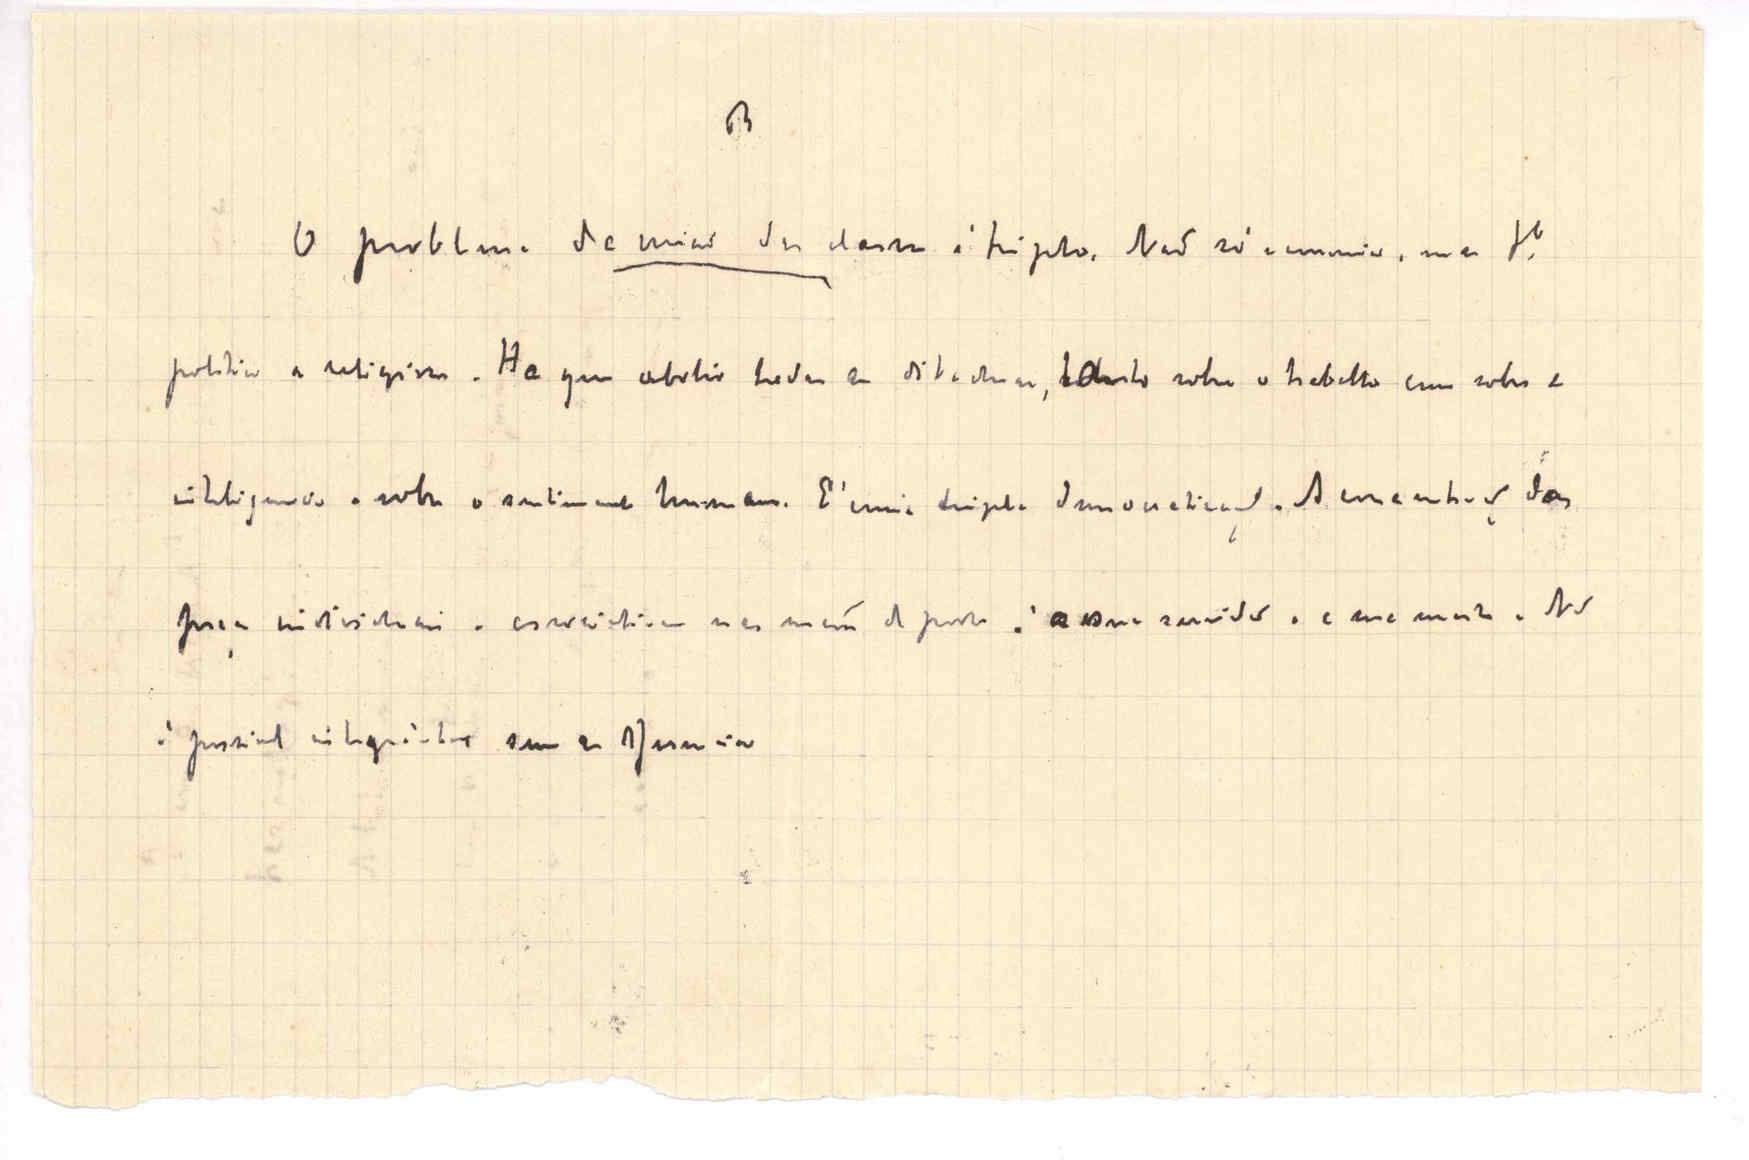 B
O problema da união das classes é triplo. Não só economico, mas tb.
politico e religioso. Ha que abolir todas as ditaduras, tanto sobre o trabalho como sobre a
inteligencia e sobre o sentimento humano. É uma tripla democratização. A concentração das
forças individuais e associativas nas mãos de poder é a sua servidão e a sua morte. Não
é possivel integrá-las sem as